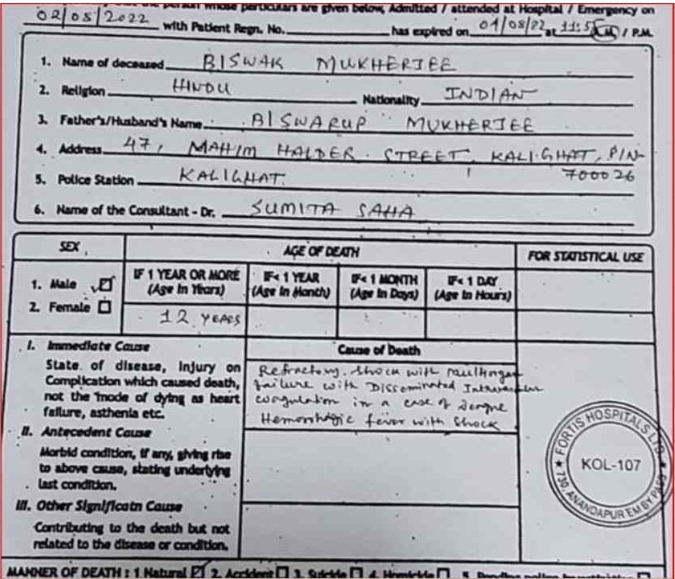 the person whose particulars are given below, Admitted / attended at Hospital / Emergency on
02/08/2022 with Patient Regn. No. has expired on 04/08/22 at 11:55 A.M. / P.M.
1. Name of deceased BISWAK MUKHERJEE
2. Religion HINDU Nationality INDIAN
3. Father's/Husband's Name BISWARUP MUKHERJEE
4. Address 47, MAHIM HALDER STREET, KALIGHAT, PIN-
700026
5. Police Station KALIGHAT
6. Name of the Consultant - Dr. SUMITA SAHA
SEX AGE OF DEATH FOR STATISTICAL USE
1. Male
2. Female
IF 1 YEAR OR MORE (Age in Years)
IF< 1 YEAR (Age in Month)
IF< 1 MONTH (Age in Days)
IF< 1 DAY (Age in Hours)
12 YEARS
I. Immediate Cause
State of disease, injury on
Complication which caused death,
not the mode of dying as heart
failure, asthenia etc.
II. Antecedent Cause
Morbid condition, if any, giving rise
to above cause, stating underlying
last condition.
III. Other Significatn Cause
Contributing to the death but not
related to the disease or condition.
Cause of Death
Refractory shock with multiorgan
failure with Disseminated Intravascular
coagulation in a case of Dengue
Hemorrhagic fever with shock
FORTIS HOSPITALS LTD.
KOL-107
730, ANANDAPUR EM BY PASS
MANNER OF DEATH : 1 Natural 2. Accident 3. Suicide 4. Homicide 5. Pending police